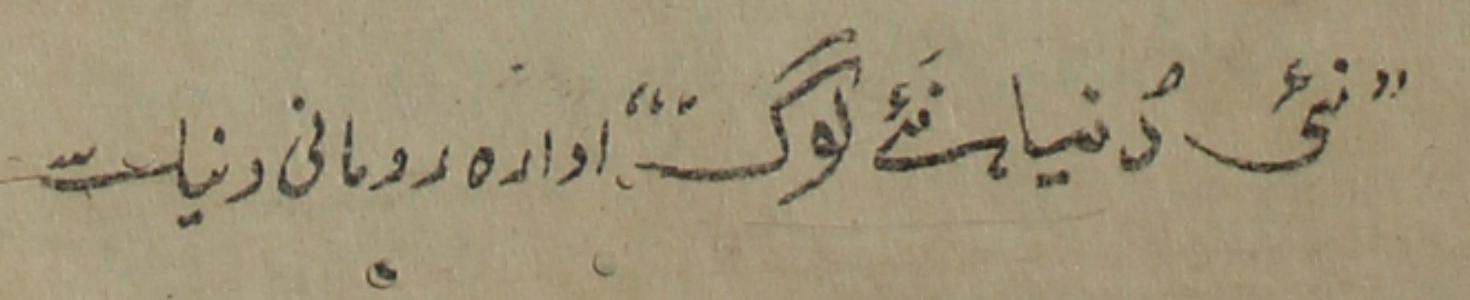 ”نئی دُنیا نئے لوگ“ ادارہ رومانی دنیا سے